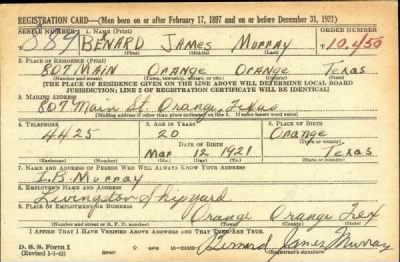 REGISTRATION CARD—(Men born on or after February 17, 1897 and on or before December 31, 1921)
SERIAL NUMBER 1. NAME (Print) ORDER NUMBER
BENARD James Murray 10,450
(First) (Middle) (Last)
2. PLACE OF RESIDENCE (Print)
807 MAIN Orange Orange Texas
(Number and street) (Town, township, village, or city) (County) (State)
[THE PLACE OF RESIDENCE GIVEN ON THE LINE ABOVE WILL DETERMINE LOCAL BOARD
JURISDICTION; LINE 2 OF REGISTRATION CERTIFICATE WILL BE IDENTICAL]
3. MAILING ADDRESS
807 Main St. Orange, Texas
[Mailing address if other than place indicated on line 2. If same insert word same]
4. TELEPHONE 5. AGE IN YEARS 6. PLACE OF BIRTH
4425 20 Orange
DATE OF BIRTH (Town or county)
Mar 12 1921 Texas
(Exchange) (Number) (Mo.) (Day) (Yr.) (State or country)
7. NAME AND ADDRESS OF PERSON WHO WILL ALWAYS KNOW YOUR ADDRESS
Murray
8. EMPLOYER'S NAME AND ADDRESS
Livingston Shipyard
9. PLACE OF EMPLOYMENT OR BUSINESS
Orange Orange Tex
(Number and street or R. F. D. number) (Town) (County) (State)
I AFFIRM THAT I HAVE VERIFIED ABOVE ANSWERS AND THAT THEY ARE TRUE.
D. S. S. Form 1
(Revised 1-1-42) Bernard James Murray